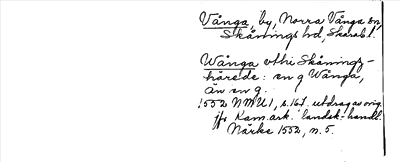 Vånga, by, Norra Vånga sn,
Skånings hd, Skarab. l.
Wånga vthi Skånings-
härede: en g Wånga,
än en g.
1552 NMU1, s. 167. utdrag av orig.
jfr Kam. ark. landsk. handl.
Närke 1552, n. 5.